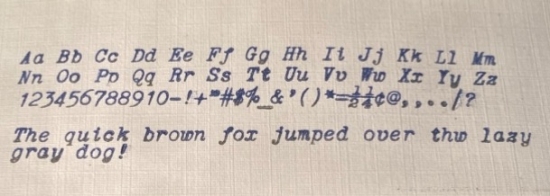 Aa Bb Cc Dd Ee Ff Gg Hh Ii Jj Kk Ll Mm
Nn Oo Pp Qq Rr Ss Tt Uu Vv Ww Xx Yy Zz
123456788910-!+"#$%_&'()*=½¼¢@,,../?
The quick brown fox jumped over thw lazy
gray dog!